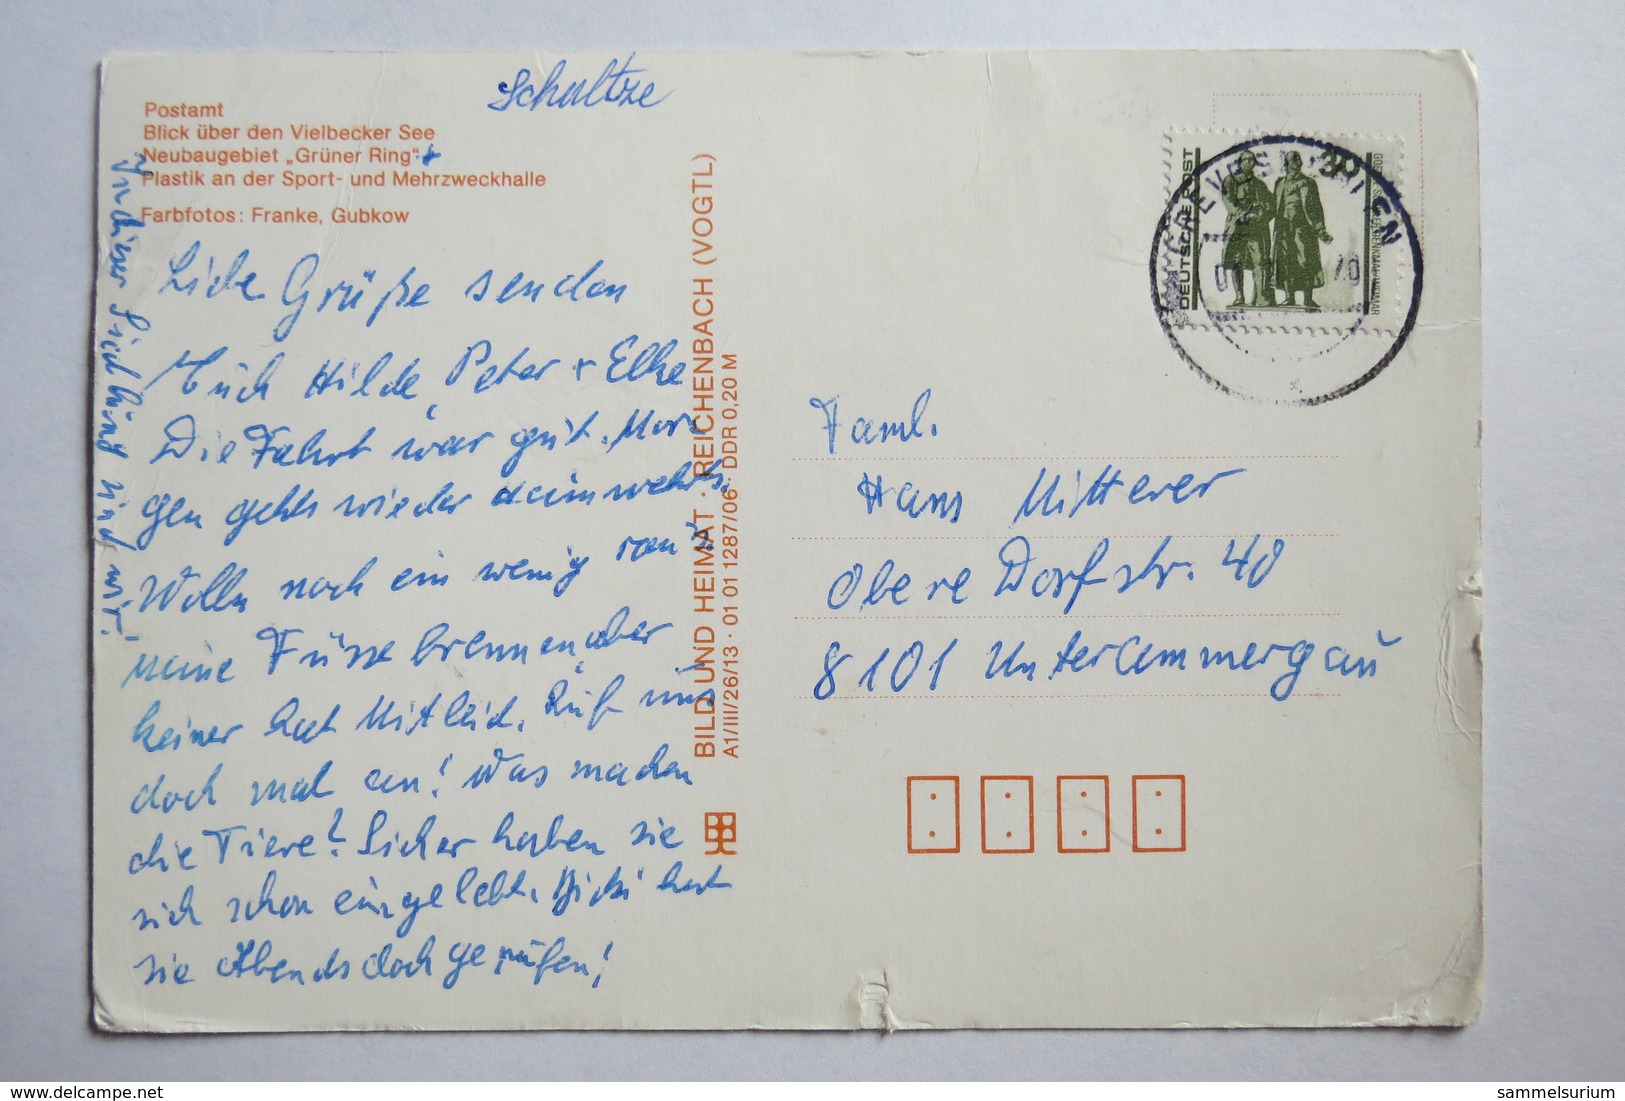 Schultze
Postamt
Blick über den Vielbecker See
Neubaugebiet „Grüner Ring" *
Plastik an der Sport- und Mehrzweckhalle
Farbfotos: Franke, Gubkow
Liebe Grüße senden
Euch Hilde, Peter + Elke
Die Fahrt war gut. Mor
gen gehts wieder heimwehrts.
Wolln noch ein wenig
meine Füsse brennen, aber
keiner hat Mitleid. Ruft uns
doch mal an! Was machen
die Tiere? Sicher haben sie
sich schon eingelebt. hat
sie Abends doch gerufen!
In dieser Siedlung sind wir!
BILD UND HEIMAT · REICHENBACH (VOGTL)
A1/III/26/13 · 01 01 1287/06 · DDR 0,20 M
DEUTSCHE POST
30
GREVESMÜHLEN
Faml.
Hans Mitterer
Obere Dorfstr. 40
8101 Unterammergau
sammelsurium